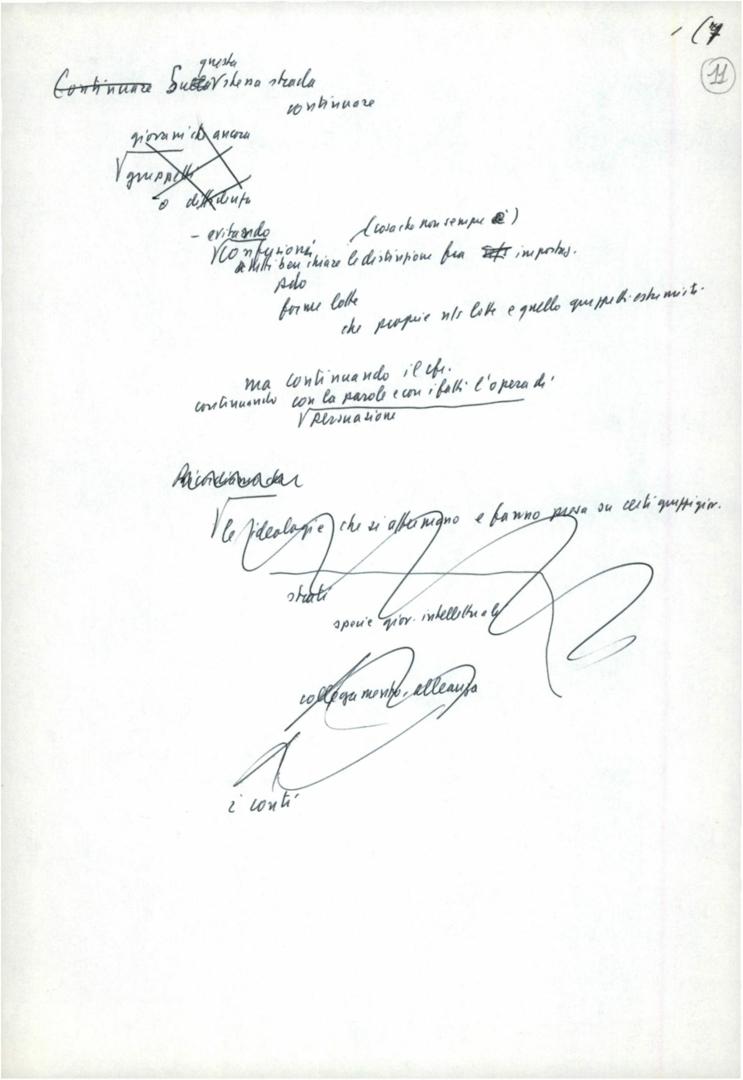 (7
11
questa
Continuare Sulla stessa strada
continuare
giovanich ancora
gruppetti
o
- evitando
(cosa che non sempre è)
confusioni
ben chiare le distinzione fra impostaz.
pdo
forme lotte
che proprie ns lotte e quello gruppetti estremisti.
ma continuando il cfr.
continuando con la parole e con i fatti l'opera di
persuazione
le ideologie che si affermano e fanno presa su certi gruppi giov.
strati
specie giov. intellettuali
collegamento, alleanza
i conti